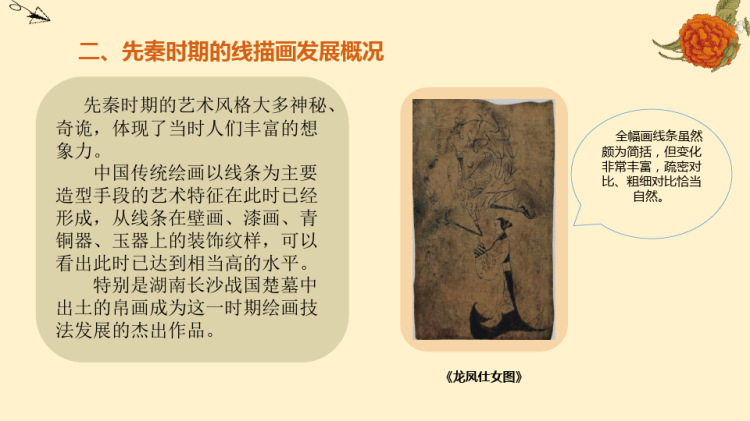 二、先秦时期的线描画发展概况
先秦时期的艺术风格大多神秘、
奇诡，体现了当时人们丰富的想
象力。
中国传统绘画以线条为主要
造型手段的艺术特征在此时已经
形成，从线条在壁画、漆画、青
铜器、玉器上的装饰纹样，可以
看出此时已达到相当高的水平。
特别是湖南长沙战国楚墓中
出土的帛画成为这一时期绘画技
法发展的杰出作品。
全幅画线条虽然
颇为简括，但变化
非常丰富，疏密对
比、粗细对比恰当
自然。
《龙凤仕女图》